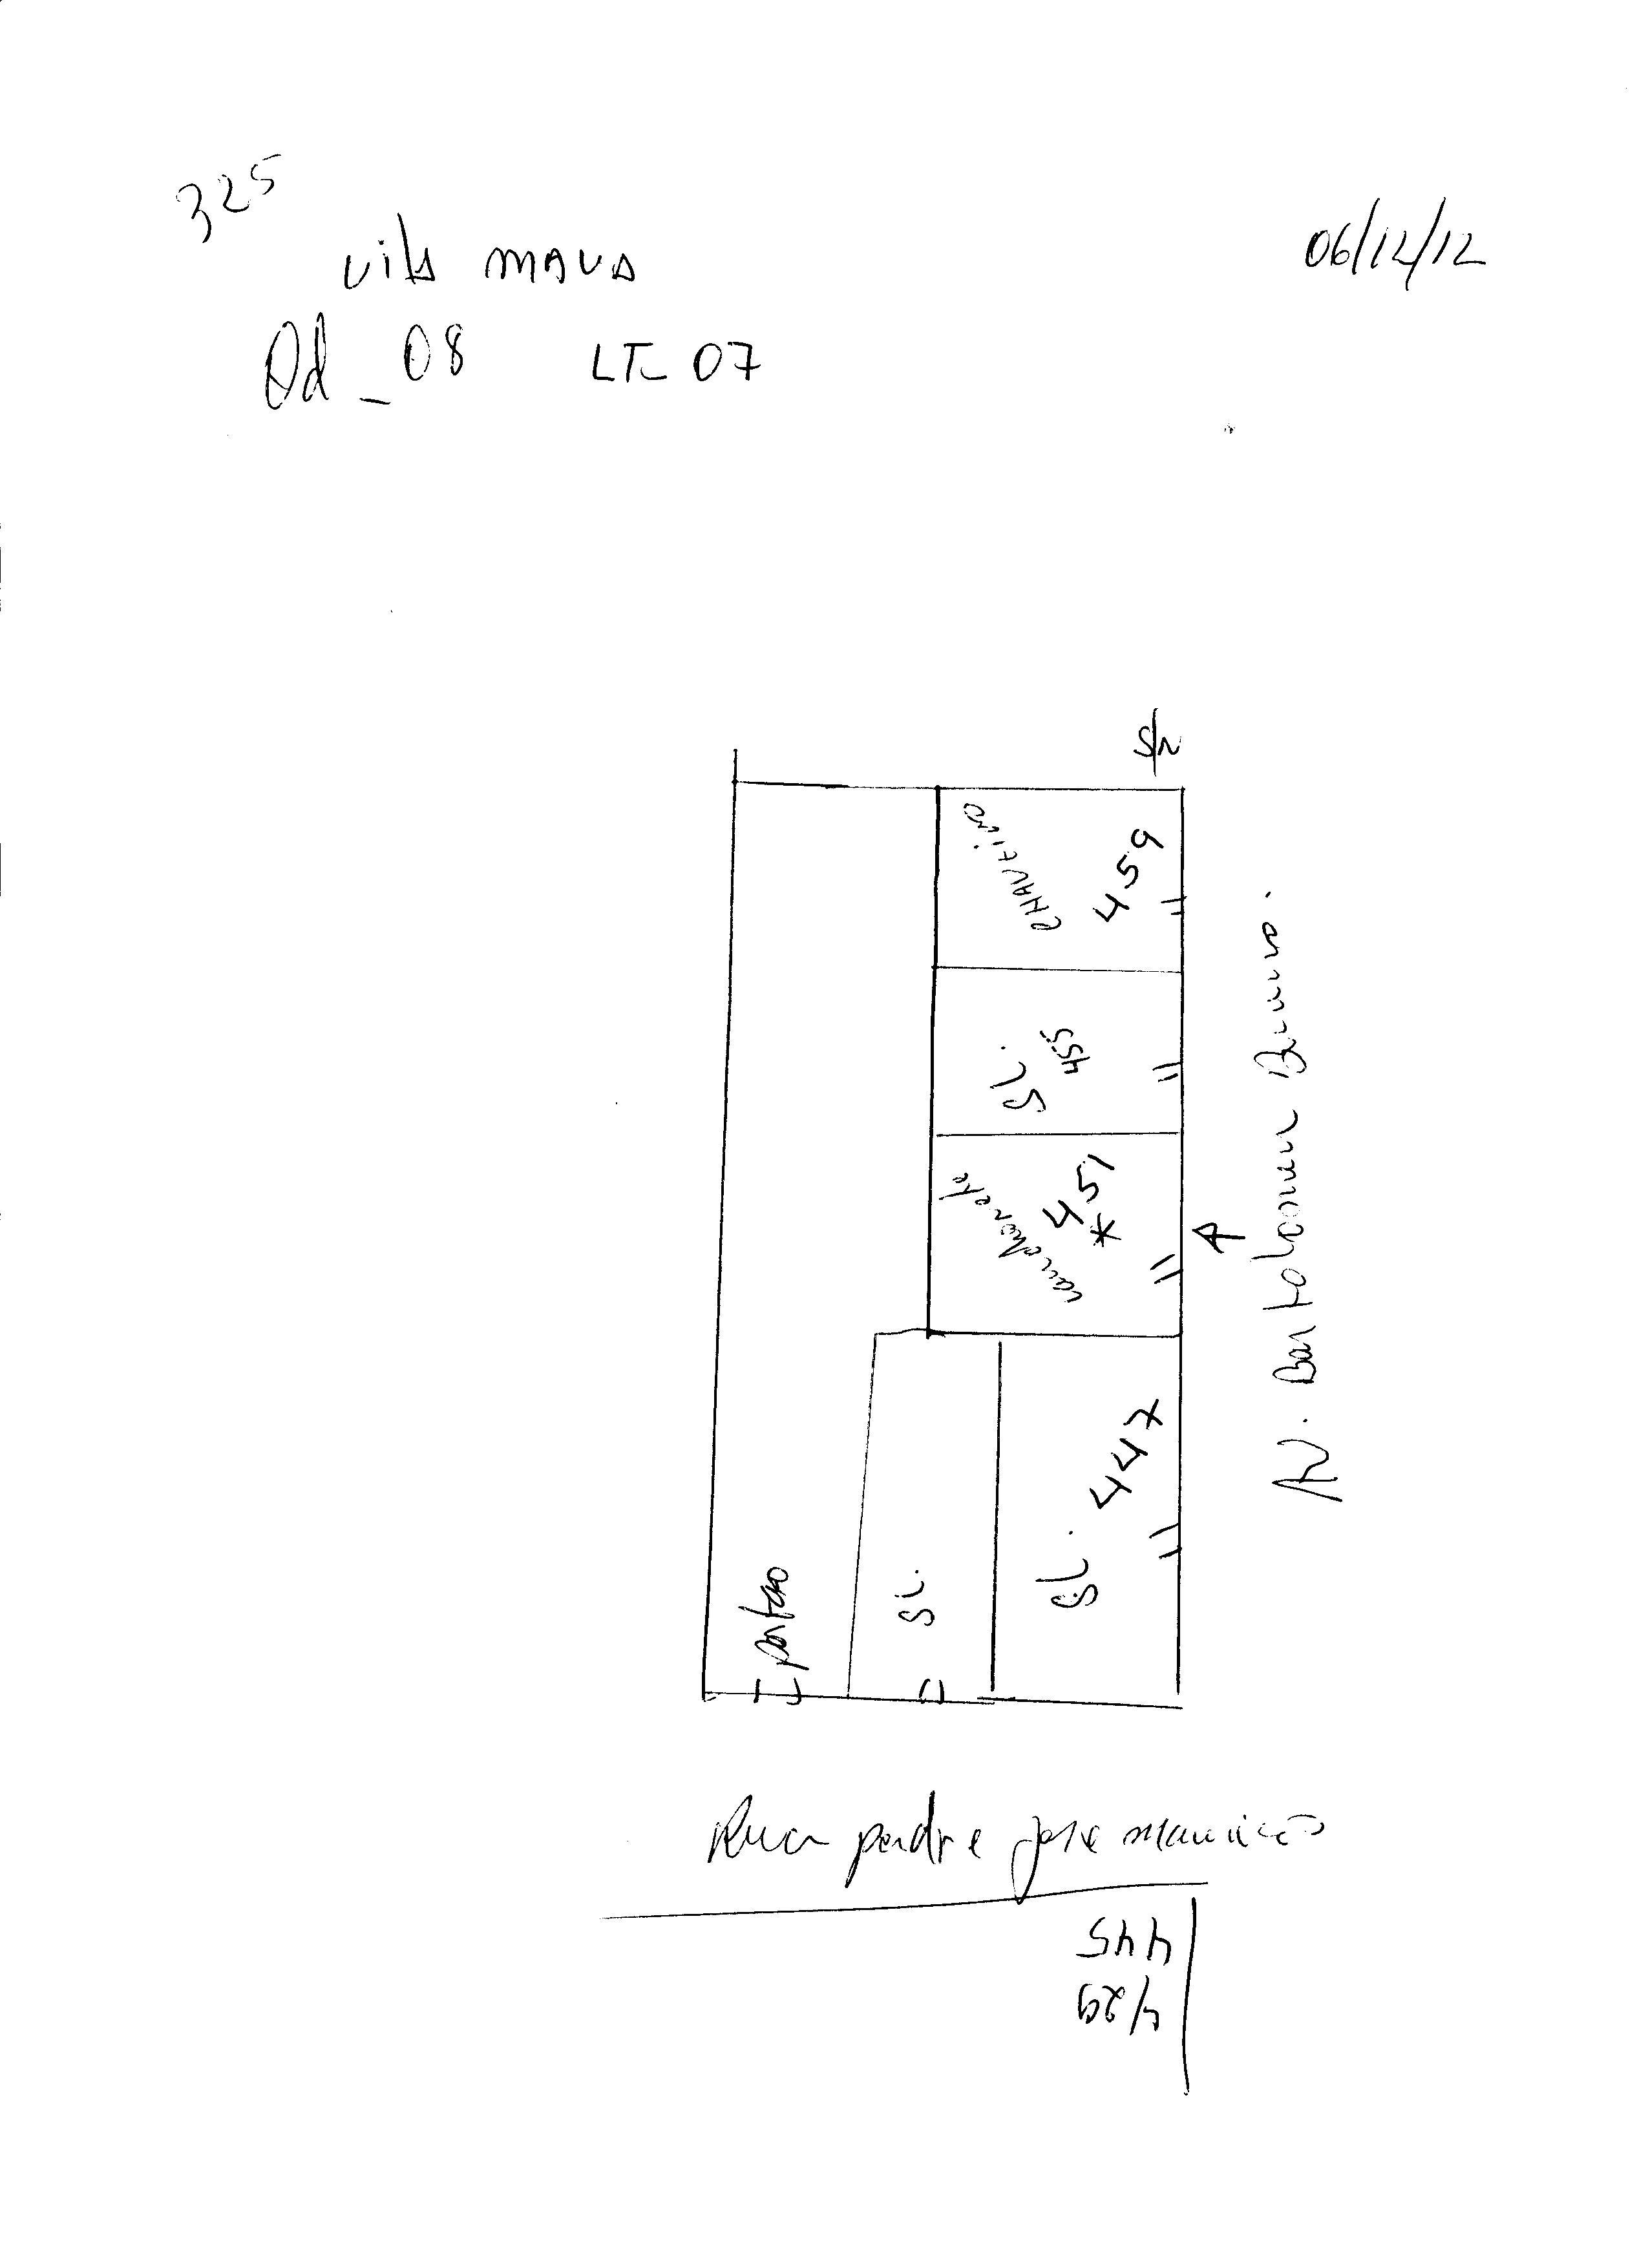 325
06/12/12
vila mauá
Qd_08 LT_07
S/N
CHAVEIRO
459
SL.
455
lanchonete
451
*
SL. 447
SL.
portão
AV. Bartolomeu Bueno.
Rua padre jose mauricio
445
429